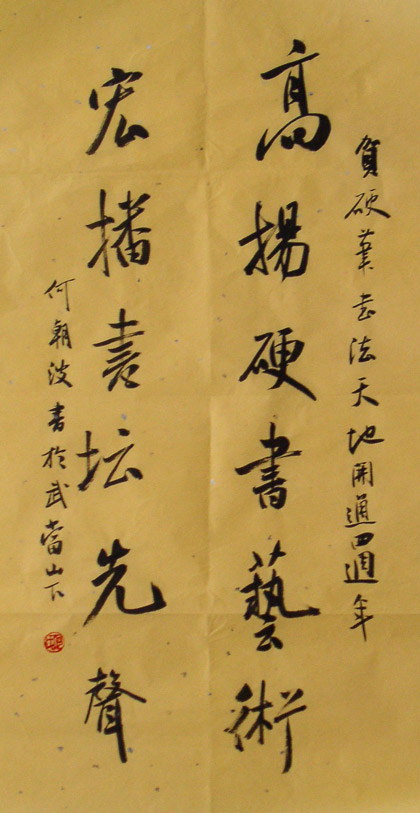 賀硬筆书法天地開通四週年
高揚硬書藝術
宏播書坛先聲
何朝波書於武當山下